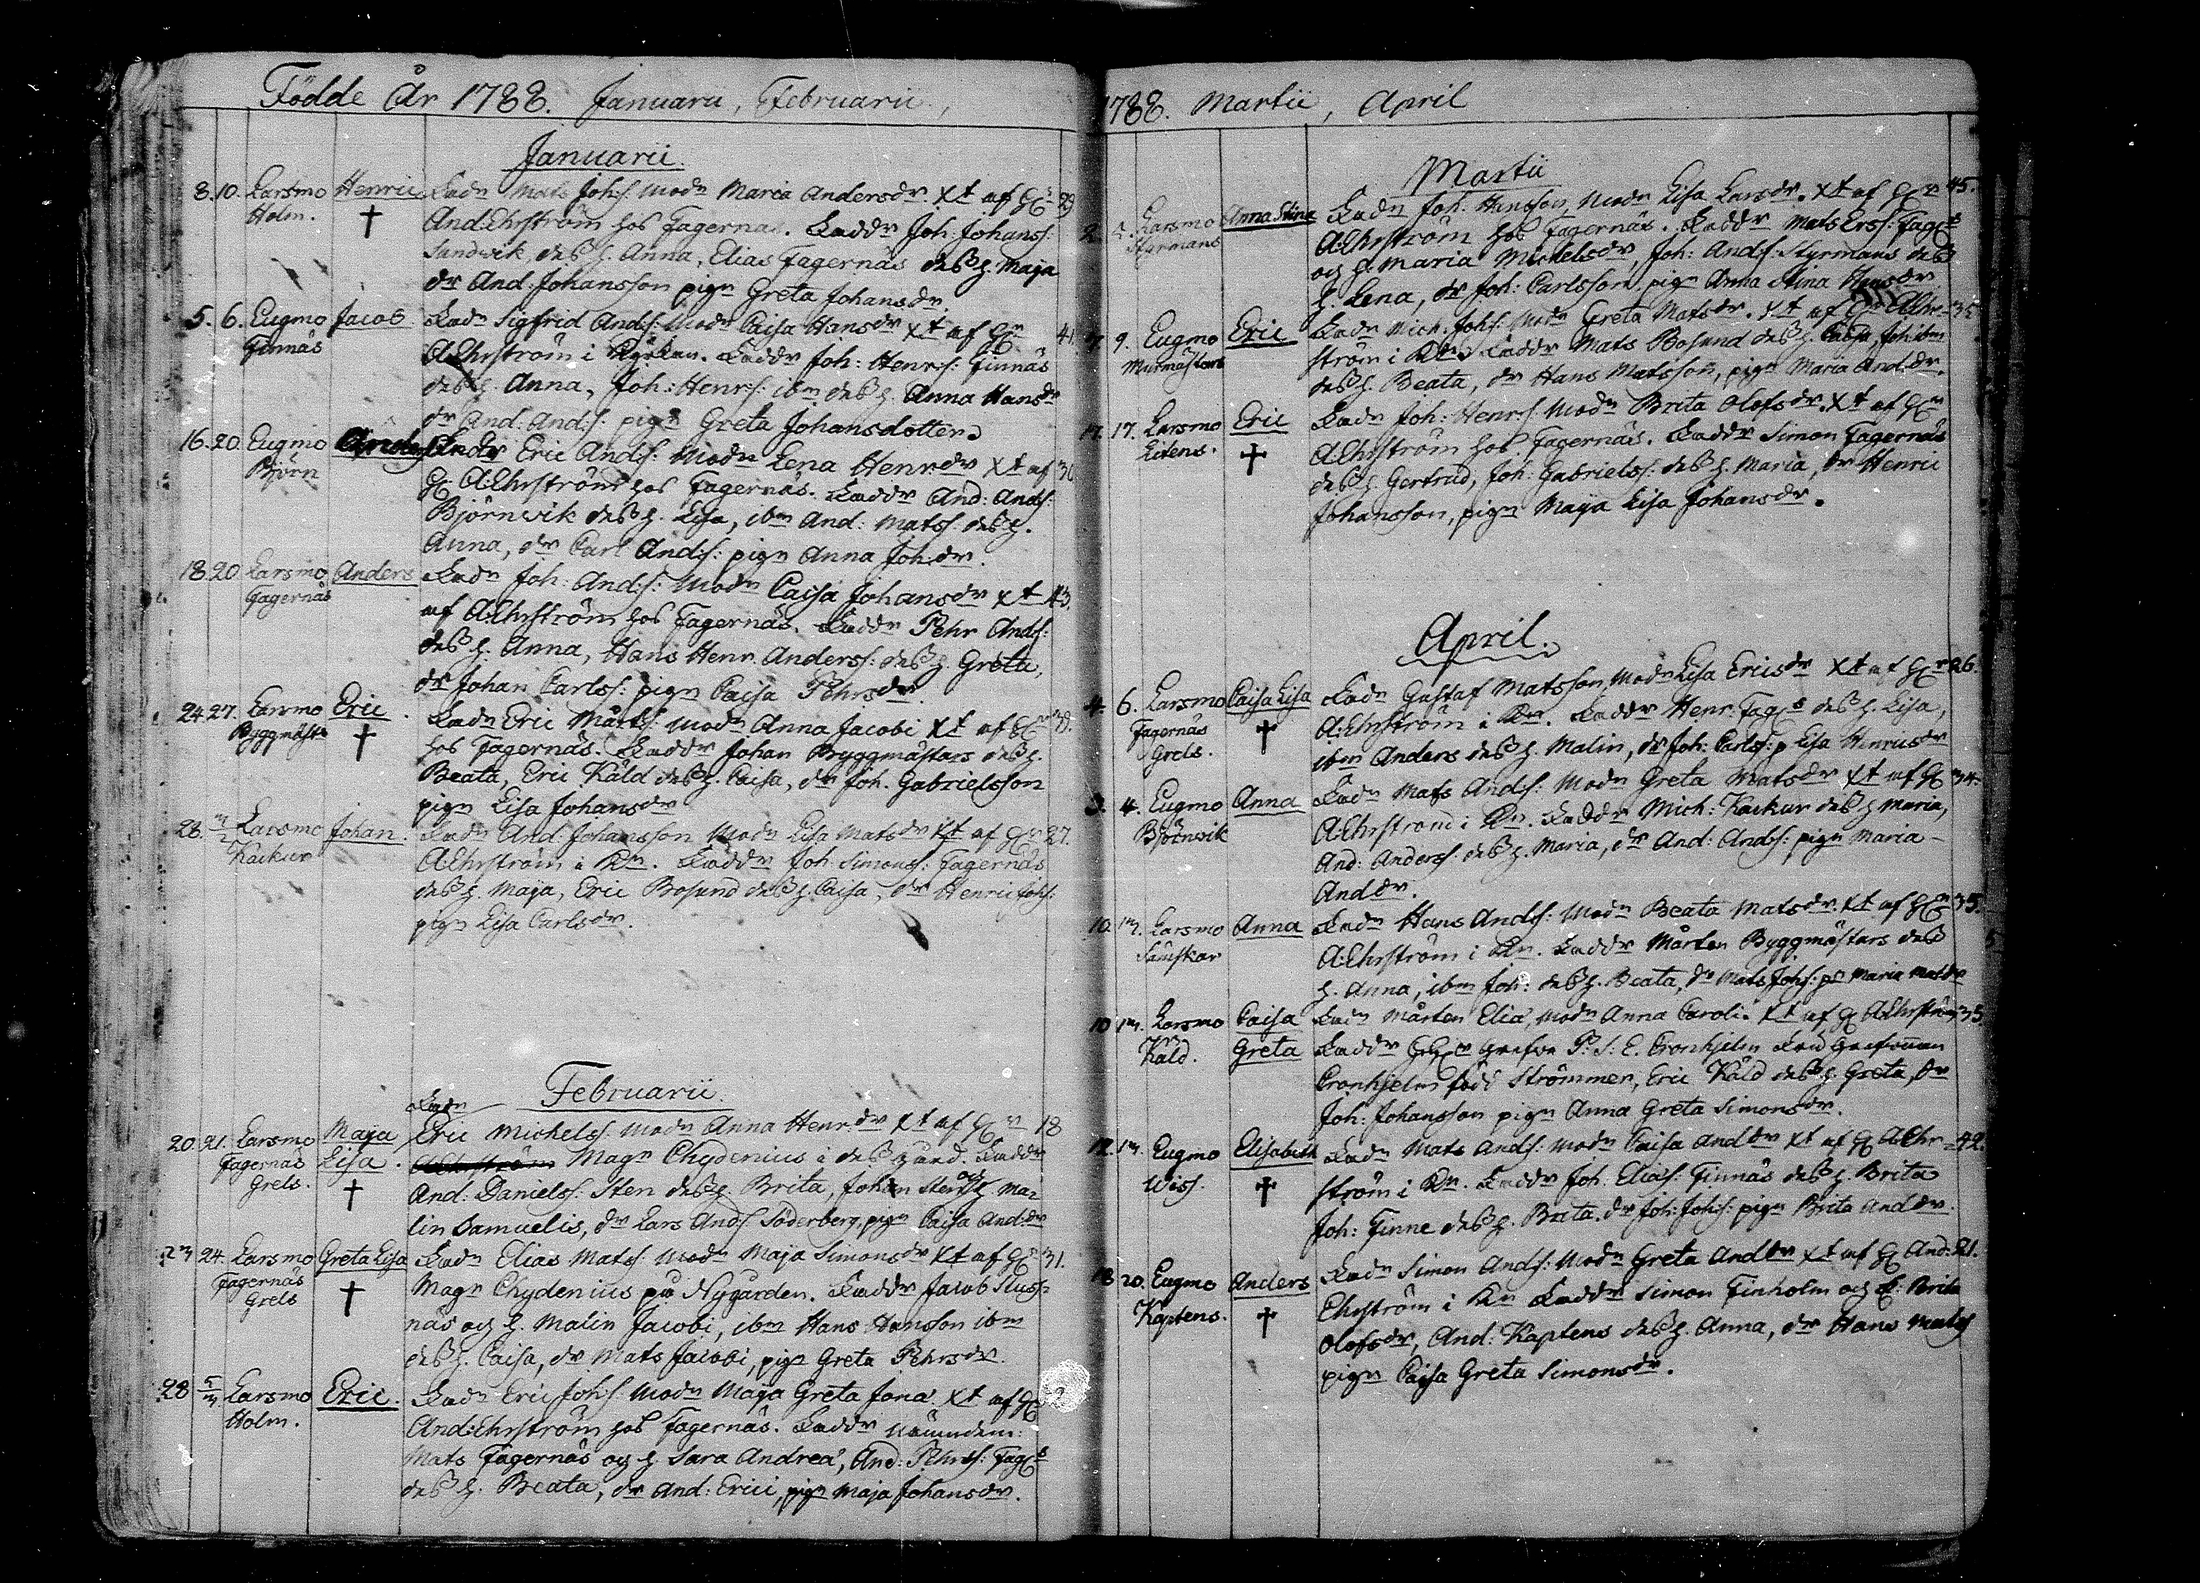 Födde År 1788. Januarii, Februarii,
Januarii.
8. 10. Larsmo Holm. Henric † Fadn Mats Johs. Modn Maria Andersdr Xt af HE
And:Ehrström hos Fagernäs. Faddr Joh: Johans:
Sandvik, deß h. Anna, Elias Fagernäs deß h. Maja
dr And: Johansson pign Greta Johansdr
5. 6. Eugmo Finnäs Jacob Fadn Sigfrid Ands: Modn Caisa Hansdr Xt af HEn 41.
A:Ehrström i Kyrkan. Faddr Joh: Henrs: Finnäs
deß h. Anna, Joh: Henrs: ibm deß h. Anna Hansdr
dr And: Ands: pign Greta Johansdotter
16. 20. Eugmo Björn Fadr Eric Ands: Modn Lena Henrdr Xt af 30
HE A:Ehrström hos Fagernäs. Faddr And: Ands:
Björnvik deß h. Lisa, ibm And: Matss. deß h.
Anna, dr Carl Ands: pign Anna Joh:dr.
18. 20 Larsmo Fagernäs Anders Fadn Joh: Ands: Modn Caisa Johansdr Xt 43.
af A:Ehrström hos Fagernäs. Faddr Pehr Ands:
deß h. Anna, Hans Henr. Anderss: deß h. Greta,
dr Johan Carlss: pign Caisa Pehrsdr
24. 27. Larsmo Byggmäst: Eric † Fadn Eric Mårts: Modn Anna Jacobi Xt af HEn 38.
hos Fagernäs. Faddr Johan Byggmästars deß h.
Beata, Eric Kåld deß h. Caisa, dr Joh. Gabrielsson
pign Lisa Johansdr
26. Larsmo Kackur Johan. Fadn And: Johansson Modn Lisa Matsdr Xt af HEn 27.
A:Ehrström i Kn. Faddr Joh: Simons: Fagernäs
deß h. Maja, Eric Bosund deß h. Caisa, dr Henric Johs:
pign Lisa Carlsdr.
Februarii.
20. 21. Larsmo Fagernäs Grels. Maja Lisa. † Fadn Eric Michels: Modn Anna Henr:dr Xt af HEn 18
A:Ehrström Magn Chydenius i deß gård. Faddr
And: Daniels: Sten deß h. Brita, Johan Sten och h. Ma-
lin Samuelis, dr Lars Ands Söderberg, pign Caisa And:dr
23 24. Larsmo Fagernäs Grels Greta Lisa † Fadn Elias Mats: Modn Maja Simonsdr Xt af HEn 31.
Magn Chydenius på Nygården. Faddr Jacob Sluss-
näs og h. Malin Jacobi, ibm Hans Hansson ibm
deß h. Caisa, dr Mats Jacobi, pign Greta Pehrsdr.
28 Larsmo Holm. Eric. Fadn Eric Johs. Modn Maja Greta Jona Xt af HE
And:Ehrström hos Fagernäs. Faddr Nämndem:
Mats Fagernäs og h Sara Andreæ, And: Pehrs: Fags
deß h. Beata, dr And: Erici, pign Maja Johansdr.
1788. Martii, April
Martii
2. Larsmo Styrmans Anna Stina Fadn Joh: Hansson, Modn Lisa Larsdr. Xt af HEn 45.
A:Ehrström hos Fagernäs. Faddr Mats Erss: Fags
og h. Maria Mickelsdr, Joh: Ands: Styrmans deß
h. Lena, dr Joh: Carlsson, pign Anna Stina Hansdr
7. 9. Eugmo Murmästars Eric Fadn Mich. Johs: Modn Greta Matsdr. Xt af HEn A:Ehr- 35
ström i Kn. Faddr Mats Bosund deß h. Caisa, Joh ibm
deß h. Beata, dr Hans Matsson, pign Maria And:dr.
17. 17. Larsmo Litens. Eric † Fadn Joh: Henrs: Modn Brita Olofsdr. Xt af HEn
A:Ehrström hos Fagernäs. Faddr Simon Fagernäs
deß h. Gertrud, Joh: Gabrielss: deß h. Maria, dr Henric
Johansson, pign Maja Lisa Johansdr.
April.
4. 6. Larsmo Fagernäs Grels. Caisa Lisa † Fadn Gustaf Matsson, Modn Lisa Ericsdr Xt af HEn 26.
A:Ehrström i Kn. Faddr Henr: Fags deß h. Lisa,
ibm Anders deß h. Malin, dr Joh: Carlss: p Lisa Henricsdr
3. 4. Eugmo Björnvik Anna Fadn Mats Ands: Modn Greta Matsdr Xt af HE 34.
A:Ehrström i Kn. Faddr Mich: Kackur deß h Maria,
And: Anderss. deß h. Maria, dr And: Ands: pign Maria
Anddr.
10. 13. Larsmo Anna Fadn Hans Ands: Modn Beata Matsdr. Xt af HEn 35.
A:Ehrström i Kn. Faddr Mårten Byggmästars deß
h. Anna, ibm Joh: deß h. Beata, dr Mats Johs: pn Maria Matsdr
10 13. Larsmo Kåld. Caisa Greta Fadn Mårten Eliæ, Modn Anna Caroli. Xt af HE A:Ehrström 35.
Faddr Grefve P. S. E. Cronhjelm Grefvinnan
Cronhjelm född Strömmer, Eric Kåld deß h. Greta, dr
Joh: Johansson pign Anna Greta Simonsdr.
12. 13. Eugmo Wiss. Elisabeth † Fadn Mats Ands: Modn Caisa Anddr Xt af HE A:Ehr- 42.
ström i Kn. Faddr Joh. Elias: Finnäs deß h. Brita
Joh: Finne deß h. Brita. dr Joh: Johs: pign Brita Anddr.
18 20. Eugmo Kaptens. Anders † Fadn Simon Ands: Modn Greta Anddr Xt af HE And: 21.
Ehrström i Kn Faddr Simon Finholm og h. Brita
Olofsdr, And: Kaptens deß h. Anna, dr Hans Mats
pign Caisa Greta Simonsdr.